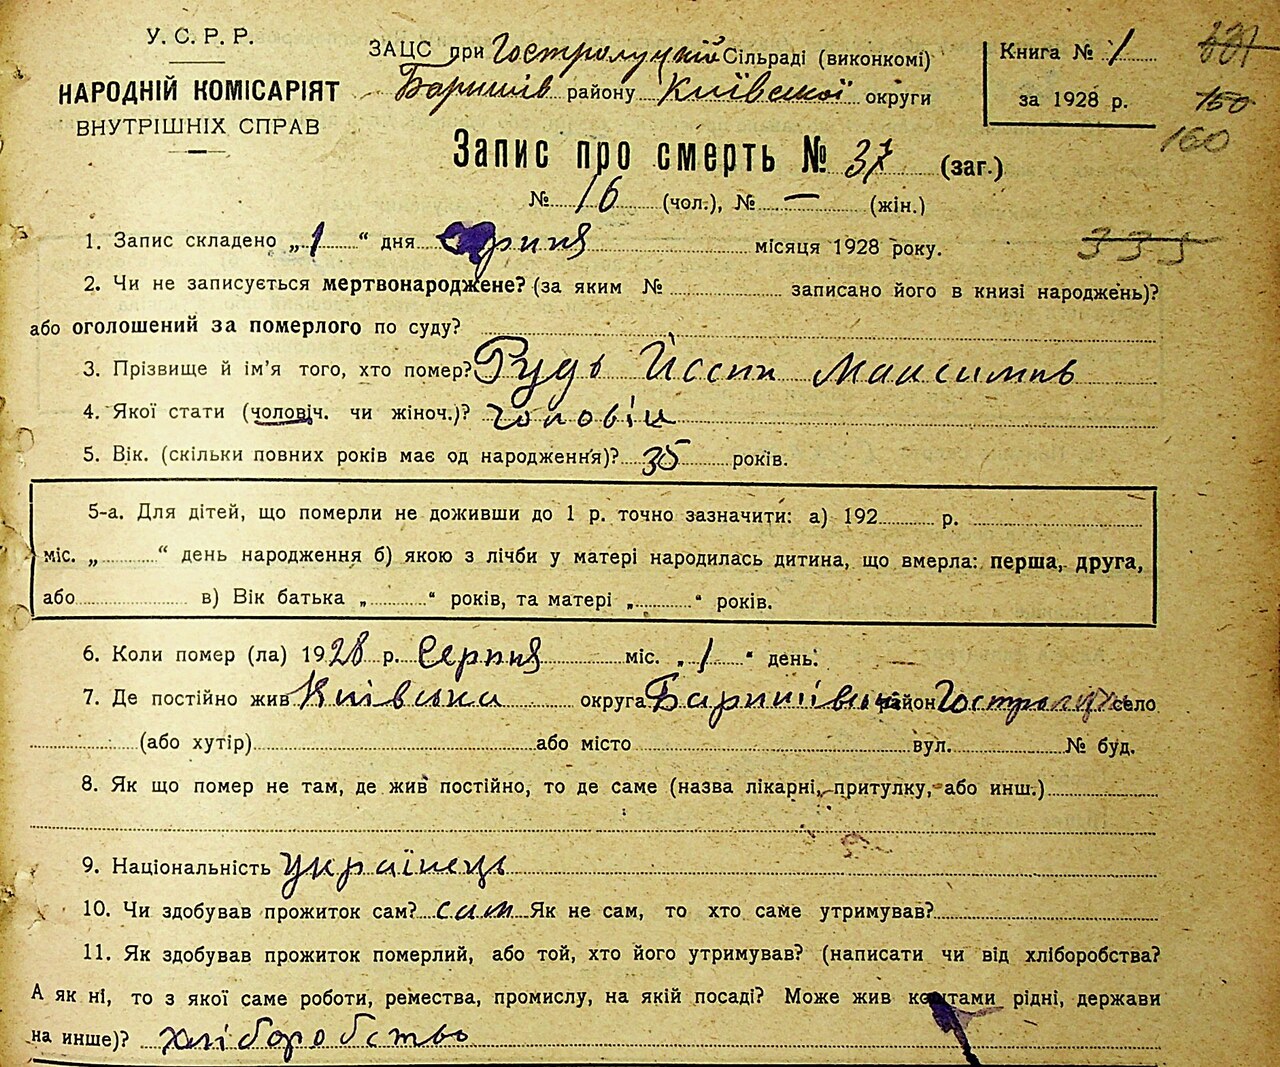 У. С. Р. Р.
НАРОДНІЙ КОМІСАРІЯТ
ВНУТРІШНІХ СПРАВ
ЗАЦС при Гостролуцкій Сільраді (виконкомі)
Баришів району Київської округи
Книга № 1
за 1928 р.
331
150
160
Запис про смерть № 37 (заг.)
№ 16 (чол.), № — (жін.)
1. Запис складено „1“ дня Серпня місяця 1928 року.
335
2. Чи не записується мертвонароджене? (за яким № записано його в книзі народжень)?
або оголошений за померлого по суду?
3. Прізвище й ім'я того, хто помер? Рудь Йосип Максимів
4. Якої стати (чоловіч. чи жіноч.)? чоловік
5. Вік. (скільки повних років має од народження)? 35 років.
5-а. Для дітей, що померли не доживши до 1 р. точно зазначити: а) 192 р.
міс. „ “ день народження б) якою з лічби у матері народилась дитина, що вмерла: перша, друга,
або в) Вік батька „ “ років, та матері „ “ років.
6. Коли помер (ла) 1928 р. Серпня міс. „1“ день.
7. Де постійно жив Київська округа Баришівський район Гостролуччя село
(або хутір) або місто вул. № буд.
8. Як що помер не там, де жив постійно, то де саме (назва лікарні, притулку, або инш.)
9. Національність українець
10. Чи здобував прожиток сам? сам Як не сам, то хто саме утримував?
11. Як здобував прожиток померлий, або той, хто його утримував? (написати чи від хліборобства?
А як ні, то з якої саме роботи, ремества, промислу, на якій посаді? Може жив коштами рідні, держави
на инше)? хліборобство